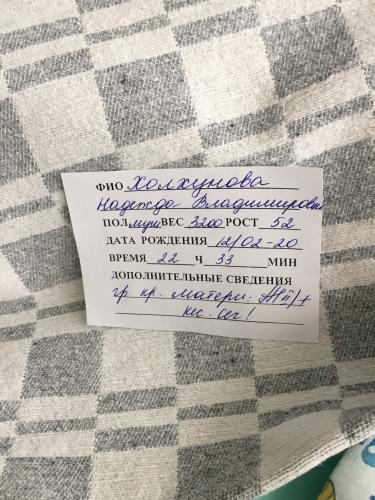 ФИО Холхунова
Надежда Владимировна
ПОЛ муж ВЕС 3200 РОСТ 52
ДАТА РОЖДЕНИЯ 12/02-20
ВРЕМЯ 22 Ч 33 МИН
ДОПОЛНИТЕЛЬНЫЕ СВЕДЕНИЯ
гр. кр. матери: A(II)+
кес. сеч!